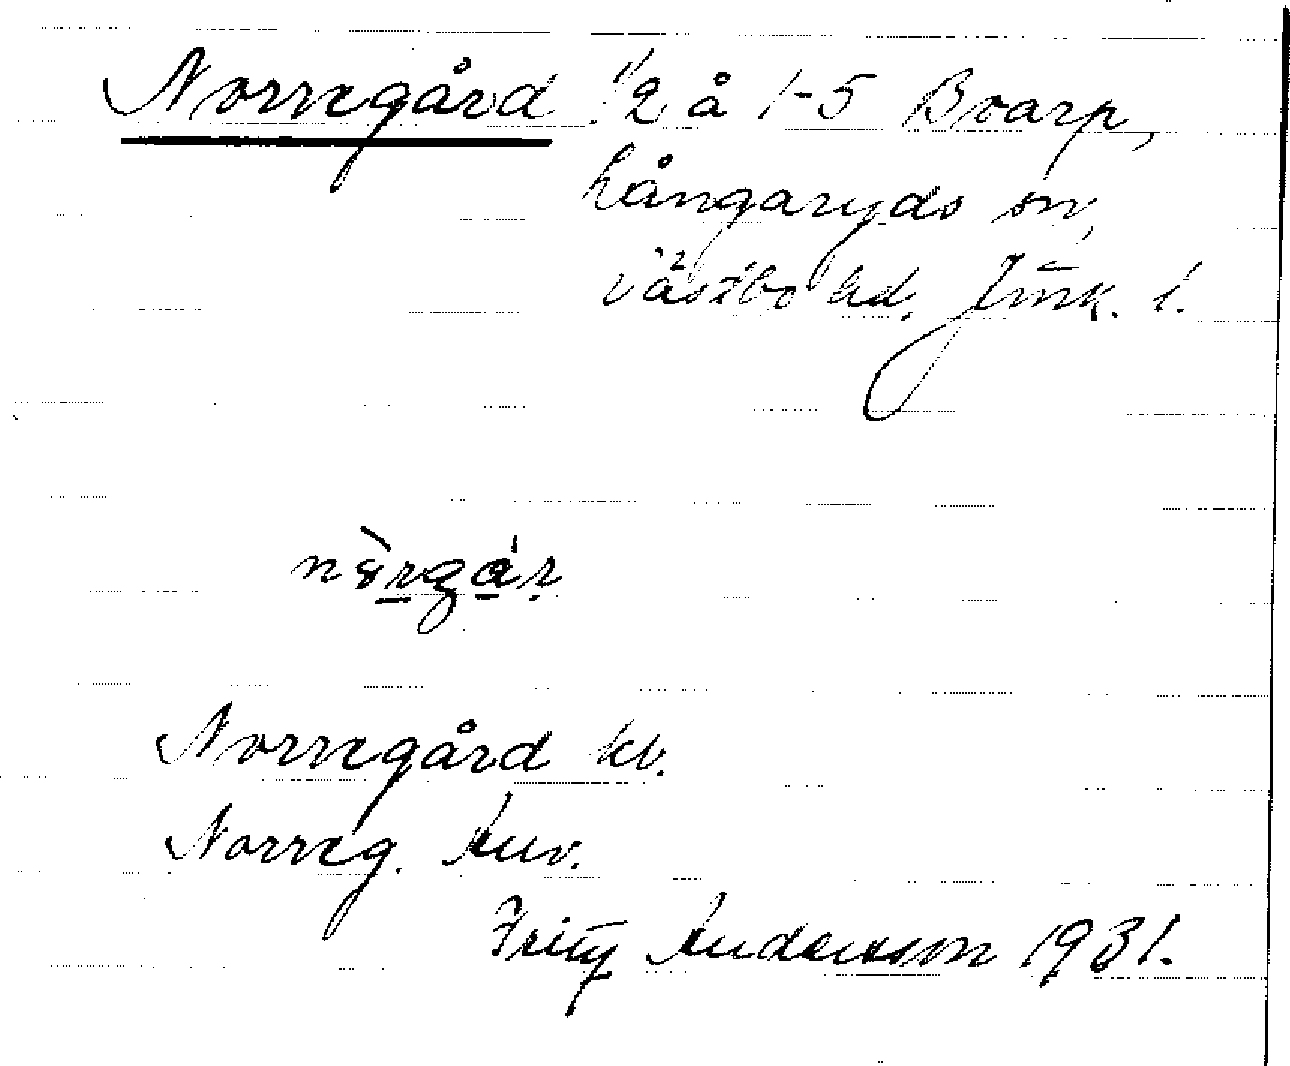 Norregård 1/2 å 1-5 Boarp,
Långaryds sn,
Västbo hd. Jönk. l.
Norregård kv.
Norreg. Auv.
Fritz Andersson 1931.